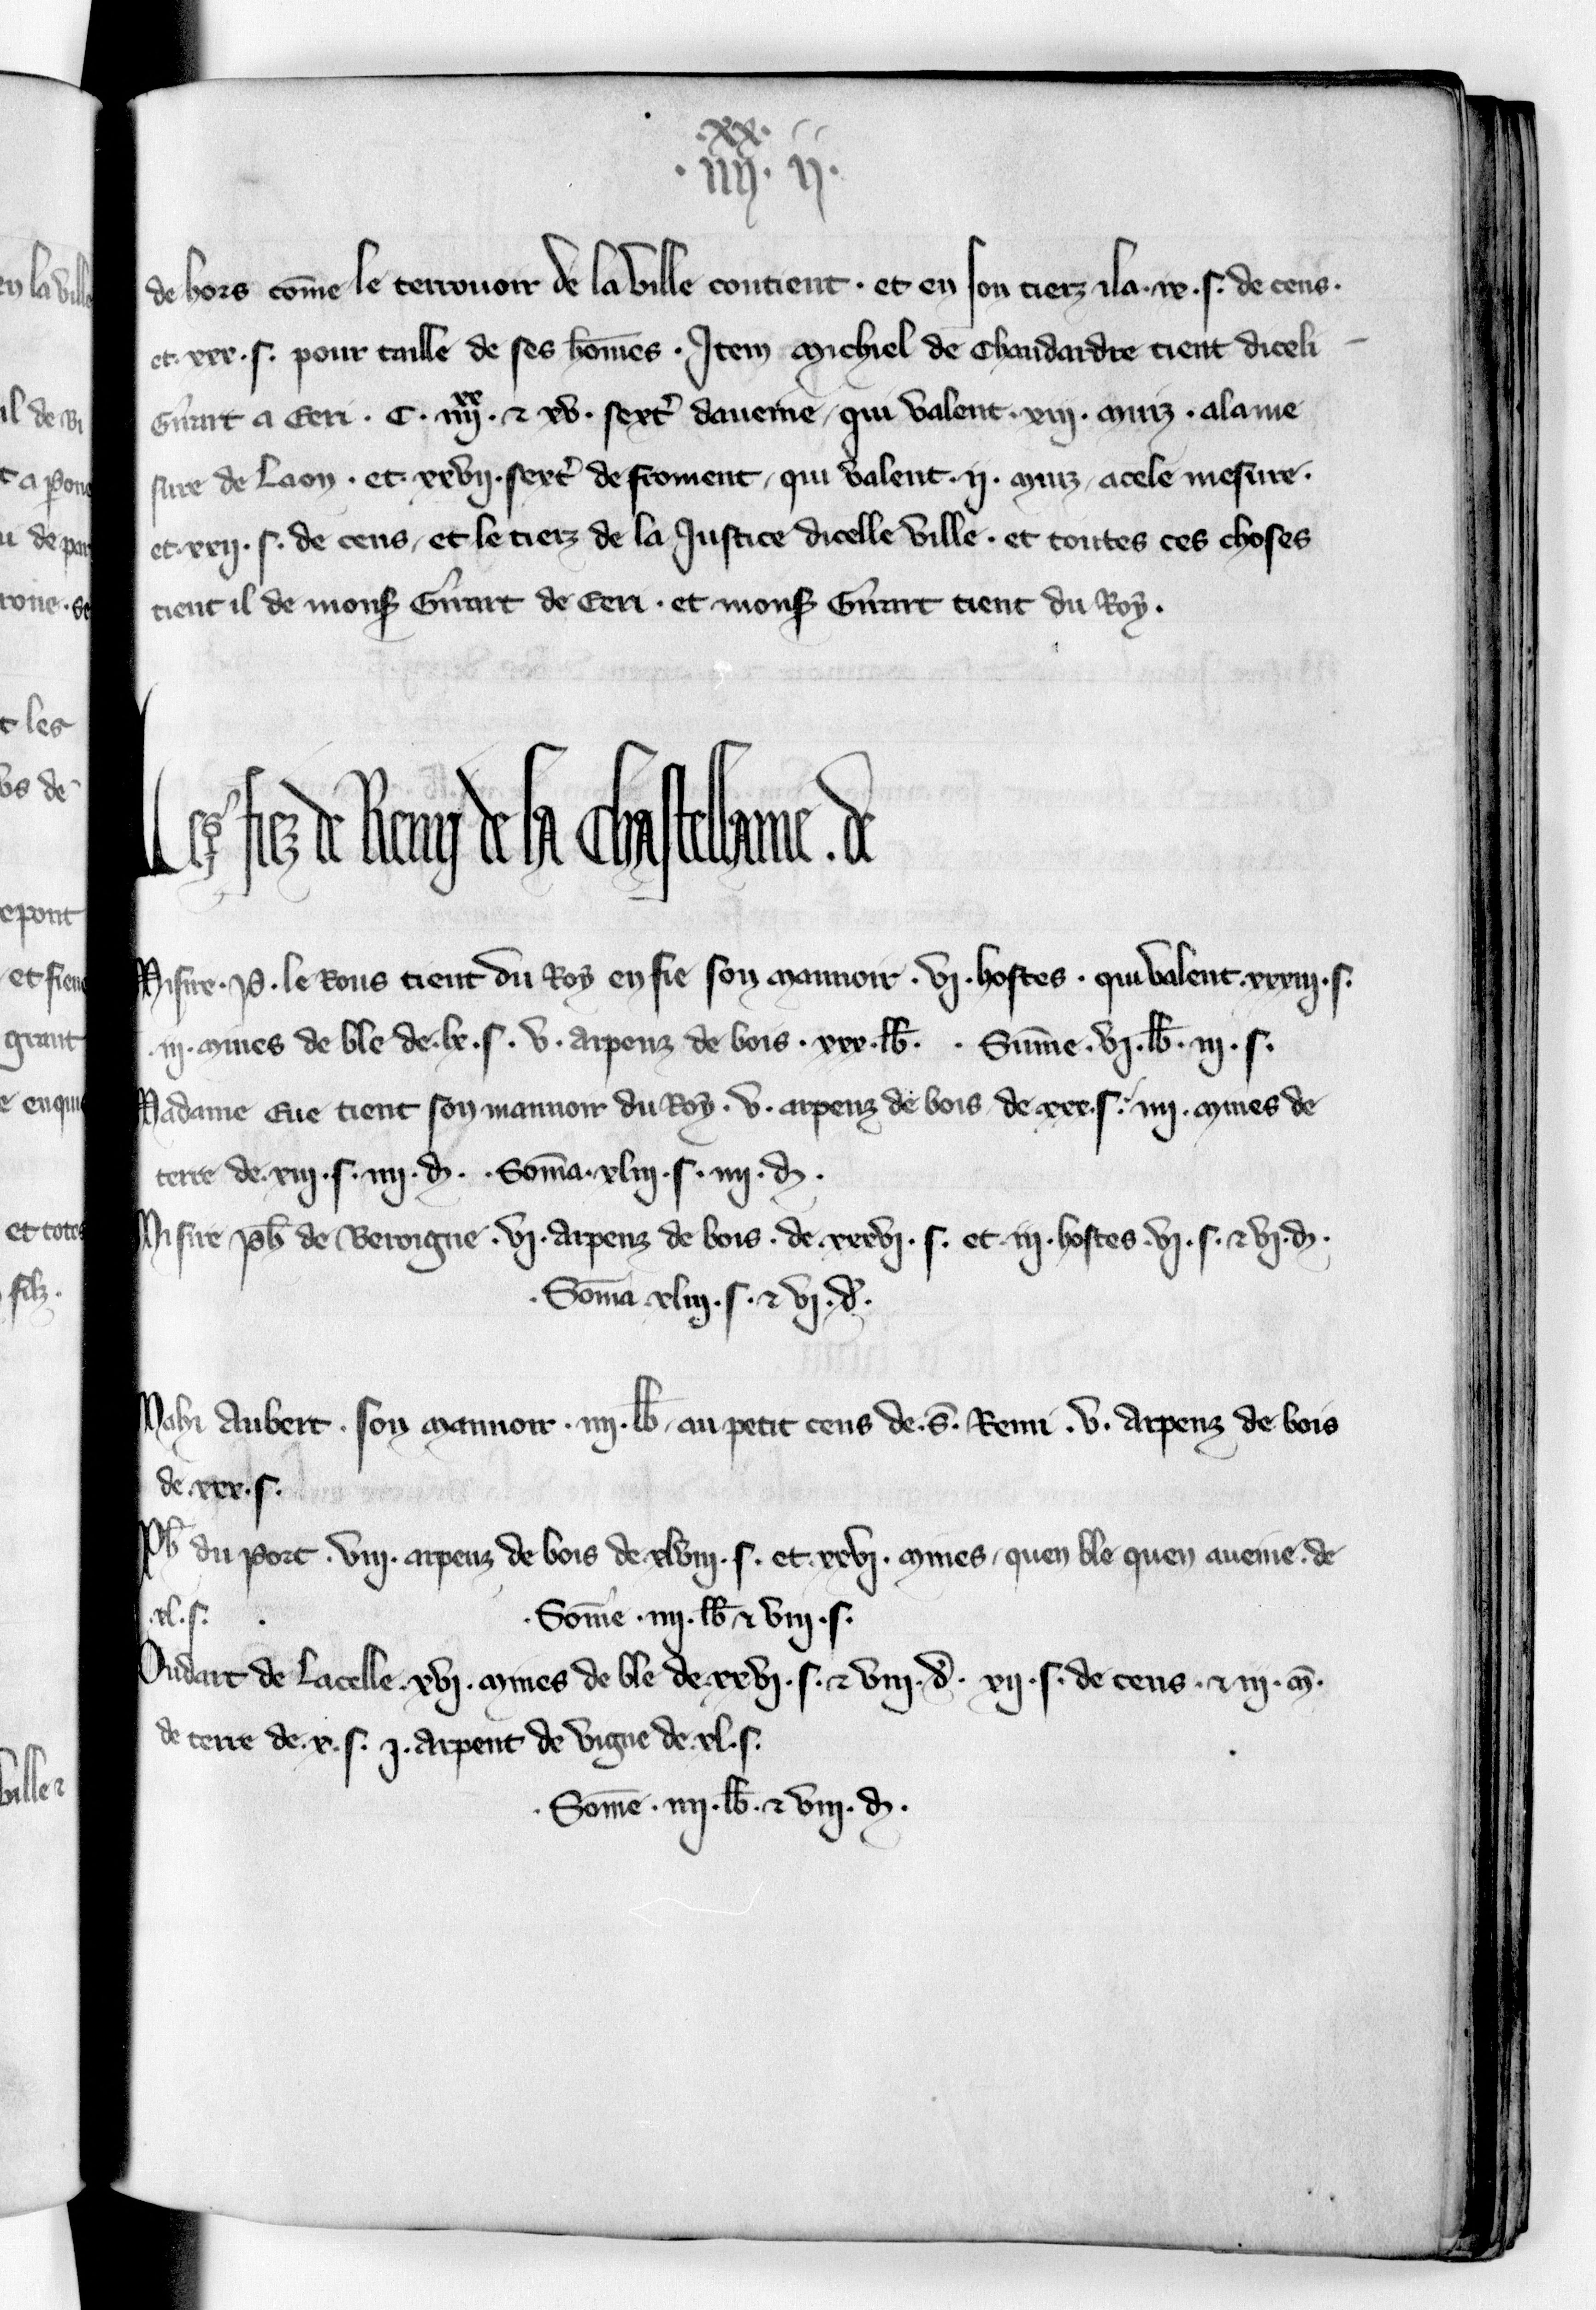 .xx.
.iiij. ij.
de hors com̄e le terrouoir de la ville contient . et en son tierz il a . xx . s . de cens .
et . xxx . s . pour taille de ses hom̄es . Item Michiel de Chaudardre tient diceli
Gir̄art a Eeri . C . iiij^xx . ⁊ xv . sext̓ daueine / qui valent . xiij . muiz . a la me
sure de Laon . et . xxvij . sext̓ de froment / qui valent . ij . muiz / a cele mesure .
et . xxij . s . de cens / et le tierz de la Justice dicelle ville . et toutes ces choses
tient il de monsꝭ Gir̄art de Eeri . et monsꝭ Gir̄art tient du Roy .
Les fiez de Remy de la Chastellanie . de
Misire . P̄ . le Rous tient du Roy en fie son mannoir . vj . hostes . qui valent . xxxiij . s .
. iij . mines de ble de . lx . s . v . arpenz de bois . xxx . lb̄ . . Sum̄e . vj . lb̄ . iij . s .
Madame Eue tient son mannoir du Roy . v . arpenz de bois de . xxx . s . iiij . mines de
terre de . xiij . s . iiij . d̓ . . Som̄a . xliij . s . iiij . d̓ .
Misire Ph̄ de Beroigne . vj . arpenz de bois . de . xxxvj . s . et . iij . hostes . vj . s . ⁊ vj . d̓ .
. Som̄a . xliij . s . ⁊ vj . d̓ .
Mahi Aubert . son mannoir . iiij . lb̄ / au petit cens de . S̄ . Remi . v . arpenz de bois
de . xxx . s .
Ph̄ du Port . viij . arpenz de bois de . xlviij . s . et . xxvj . mines / quen ble quen aueine . de
. xl . s . . Som̄e . iiij . lb̄ ⁊ viij . s .
Oudart de Lacelle . xvj . mines de ble de . xxvj . s . ⁊ viij . d̓ . xij . s . de cens . ⁊ iij . m̄ .
de terre de . x . s . j . arpent de vigne de . xl . s .
. Som̄e . iiij . lb̄ . ⁊ viij . d̓ .